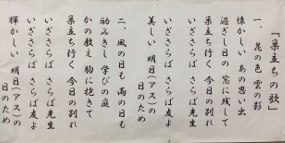 「巣立ちの歌」
一、花の色 雲の影
懐かしい あの思い出
過ぎし日の 窓に残して
巣立ち行く 今日の別れ
いざさらば さらば先生
いざさらば さらば友よ
美しい 明日(アス)の
日のため
二、風の日も 雨の日も
励みきし 学びの庭
かの教え 胸に抱きて
巣立ち行く 今日の別れ
いざさらば さらば先生
いざさらば さらば友よ
輝かしい 明日(アス)の
日のため